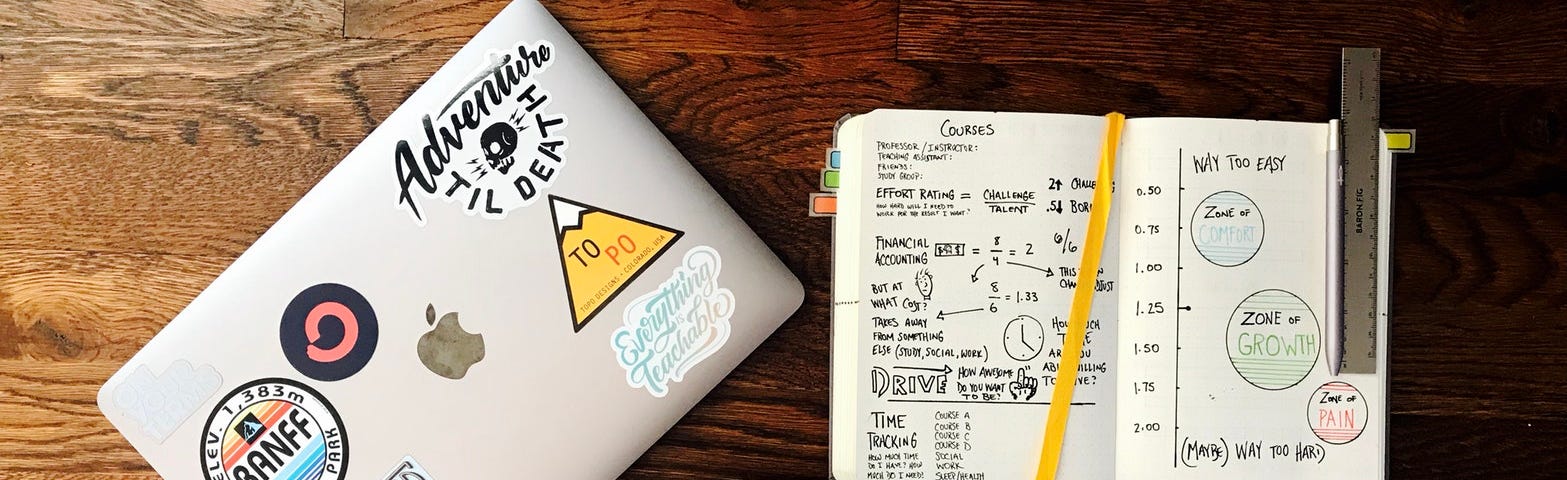 Adventure
TIL DEATH
TO PO
TOPO DESIGNS · COLORADO, USA
Everything
is
Teachable
ELEV. 1,383m
BANFF
PARK
COURSES
PROFESSOR / INSTRUCTOR:
TEACHING ASSISTANT:
FRIENDS:
STUDY GROUP:
EFFORT RATING = CHALLENGE
TALENT
HOW HARD WILL I NEED TO
WORK FOR THE RESULT I WANT?
2↑
.5↓
FINANCIAL
ACCOUNTING = 8/4 = 2
6/6
BUT AT
WHAT COST?
8/6 = 1.33
TAKES AWAY
FROM SOMETHING
ELSE (STUDY, SOCIAL, WORK)
THIS
HOW
ARE YOU
WILLING
DRIVE
HOW AWESOME
DO YOU WANT
TO BE?
TIME
TRACKING
HOW MUCH TIME
DO I HAVE? HOW
MUCH DO I NEED?
COURSE A
COURSE B
COURSE C
COURSE D
SOCIAL
WORK
SLEEP/HEALTH
WAY TOO EASY
0.50
0.75
1.00
1.25
1.50
1.75
2.00
ZONE OF
COMFORT
ZONE OF
GROWTH
ZONE OF
PAIN
(MAYBE) WAY TOO HARD
BARON FIG